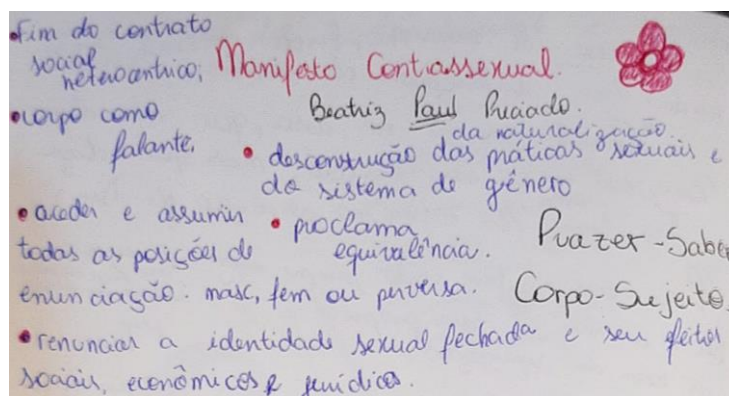 •Fim do contrato
social
heterocêntrico;
Manifesto Contrassexual.
Beatriz Paul Preciado.
•corpo como
falante.
da naturalização
• desconstrução das práticas sexuais e
do sistema de gênero
• aceder e assumir
todas as posições de
enunciação: masc, fem ou perversa.
• proclama
equivalência.
Prazer-Saber
Corpo-Sujeito.
•renunciar a identidade sexual fechada e seu efeitos
sociais, econômicos e jurídicos.